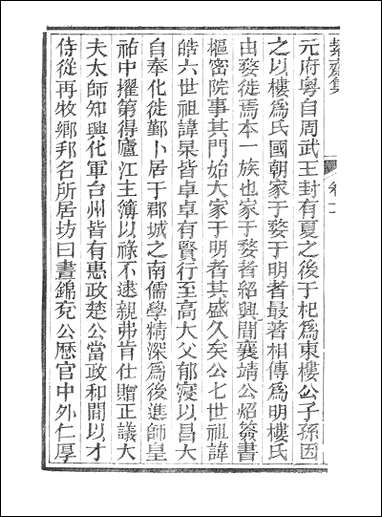 絜齋集
卷十一
元府粵自周武王封有夏之後于杞爲東樓公子孫因
之以樓爲氏國朝家于婺于明者最著相傳爲明樓氏
由婺徙焉本一族也家于婺者紹興間襄靖公炤簽書
樞密院事其門始大家于明者其盛久矣公七世祖諱
皓六世祖諱杲皆卓卓有賢行至高大父郁寖以昌大
自奉化徙鄞卜居于郡城之南儒學精深爲後進師皇
祐中擢第得廬江主簿以祿不逮親弗肯仕贈正議大
夫太師知興化軍台州皆有惠政楚公當政和間以才
侍從再牧鄉邦名所居坊曰晝錦兖公歷官中外仁厚